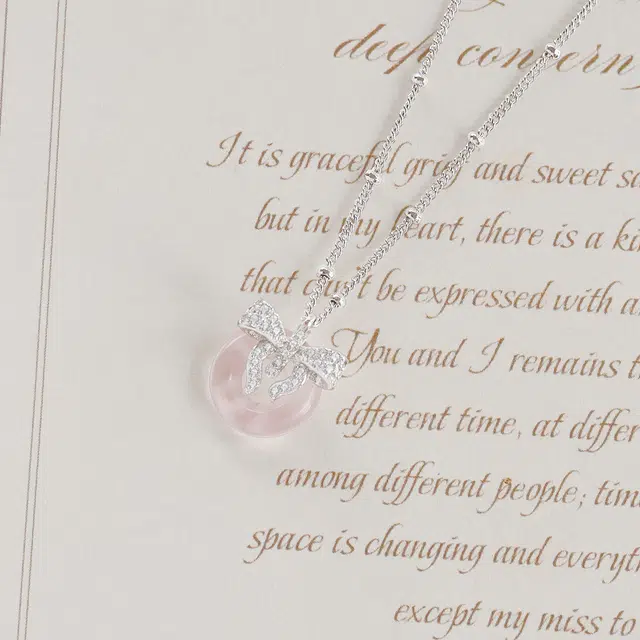 deep concern
It is graceful grief and sweet
but in my heart, there is a
that can't be expressed with
You and I remains
different time, at
among different people;
space is changing and
except my miss to